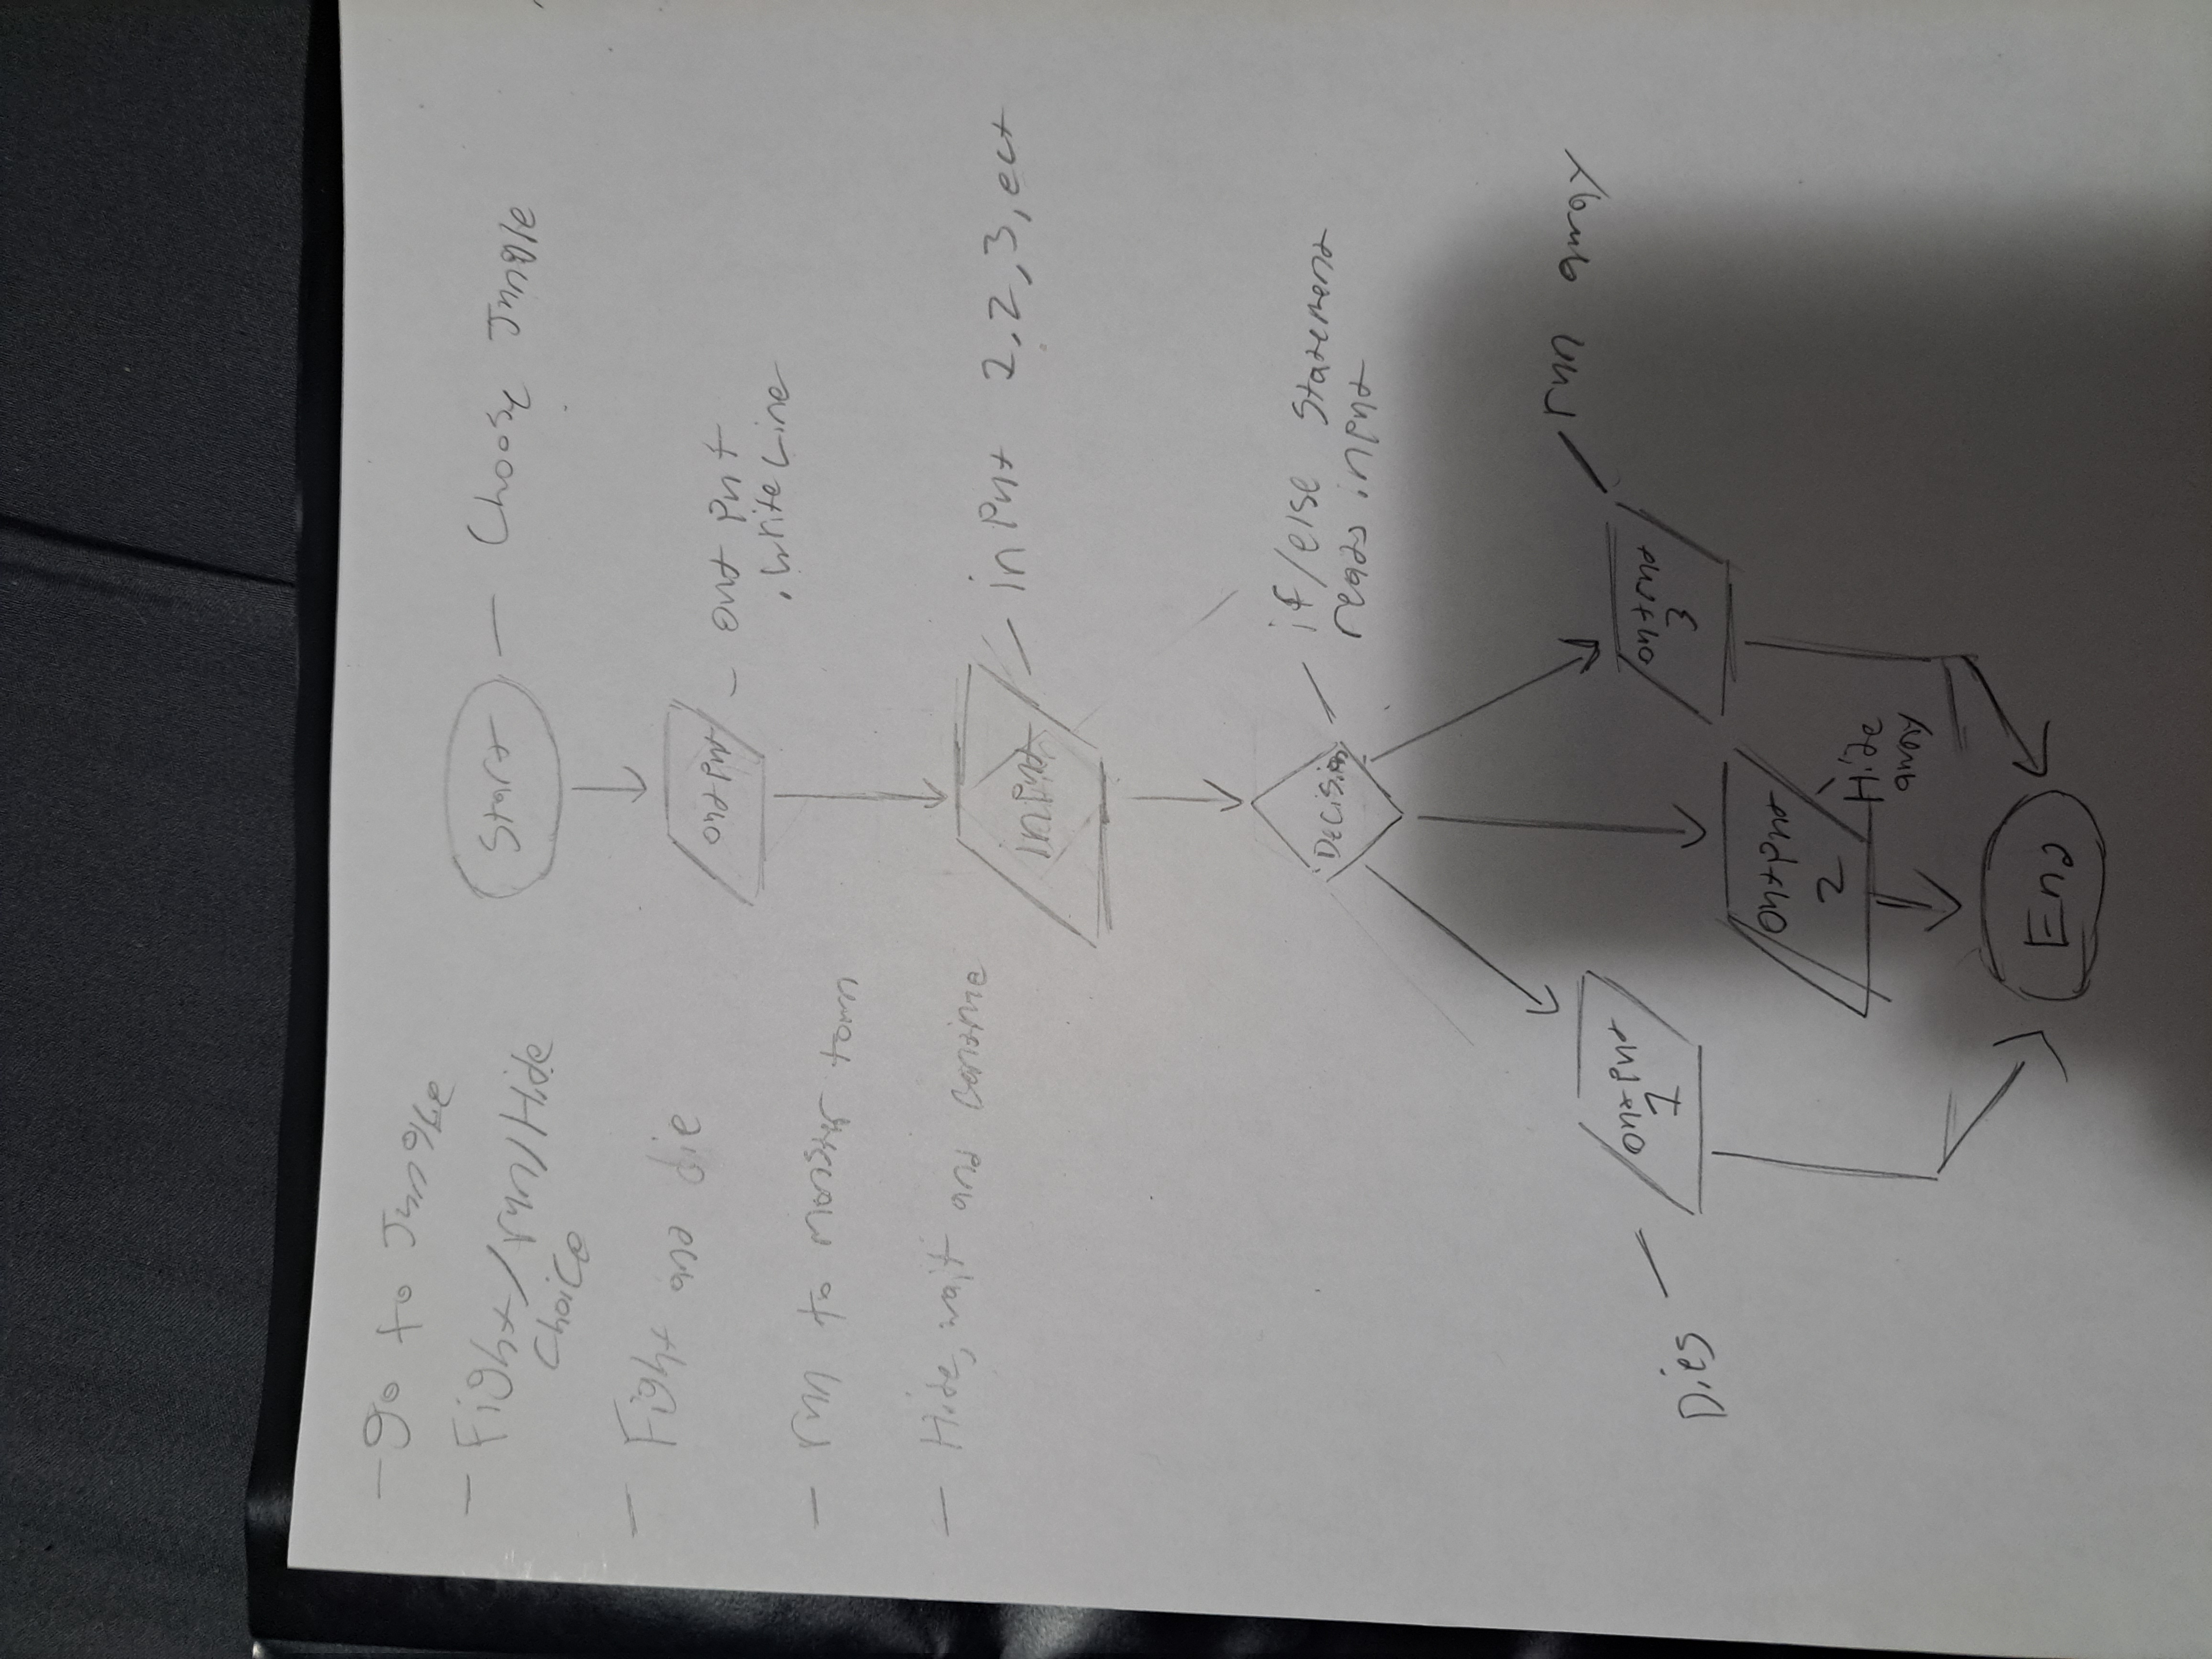 - go to Jungle
- Fight/run/Hide
choice
- Fight and die
- run to monster town
- Hide, wait and continue
Start - Choose Jungle
output - output
.writeLine
input - input 1,2,3,ect
Decision - if/else statement
reads input
output
1
Dies
output
2
Hide
away
output
3
run away
End